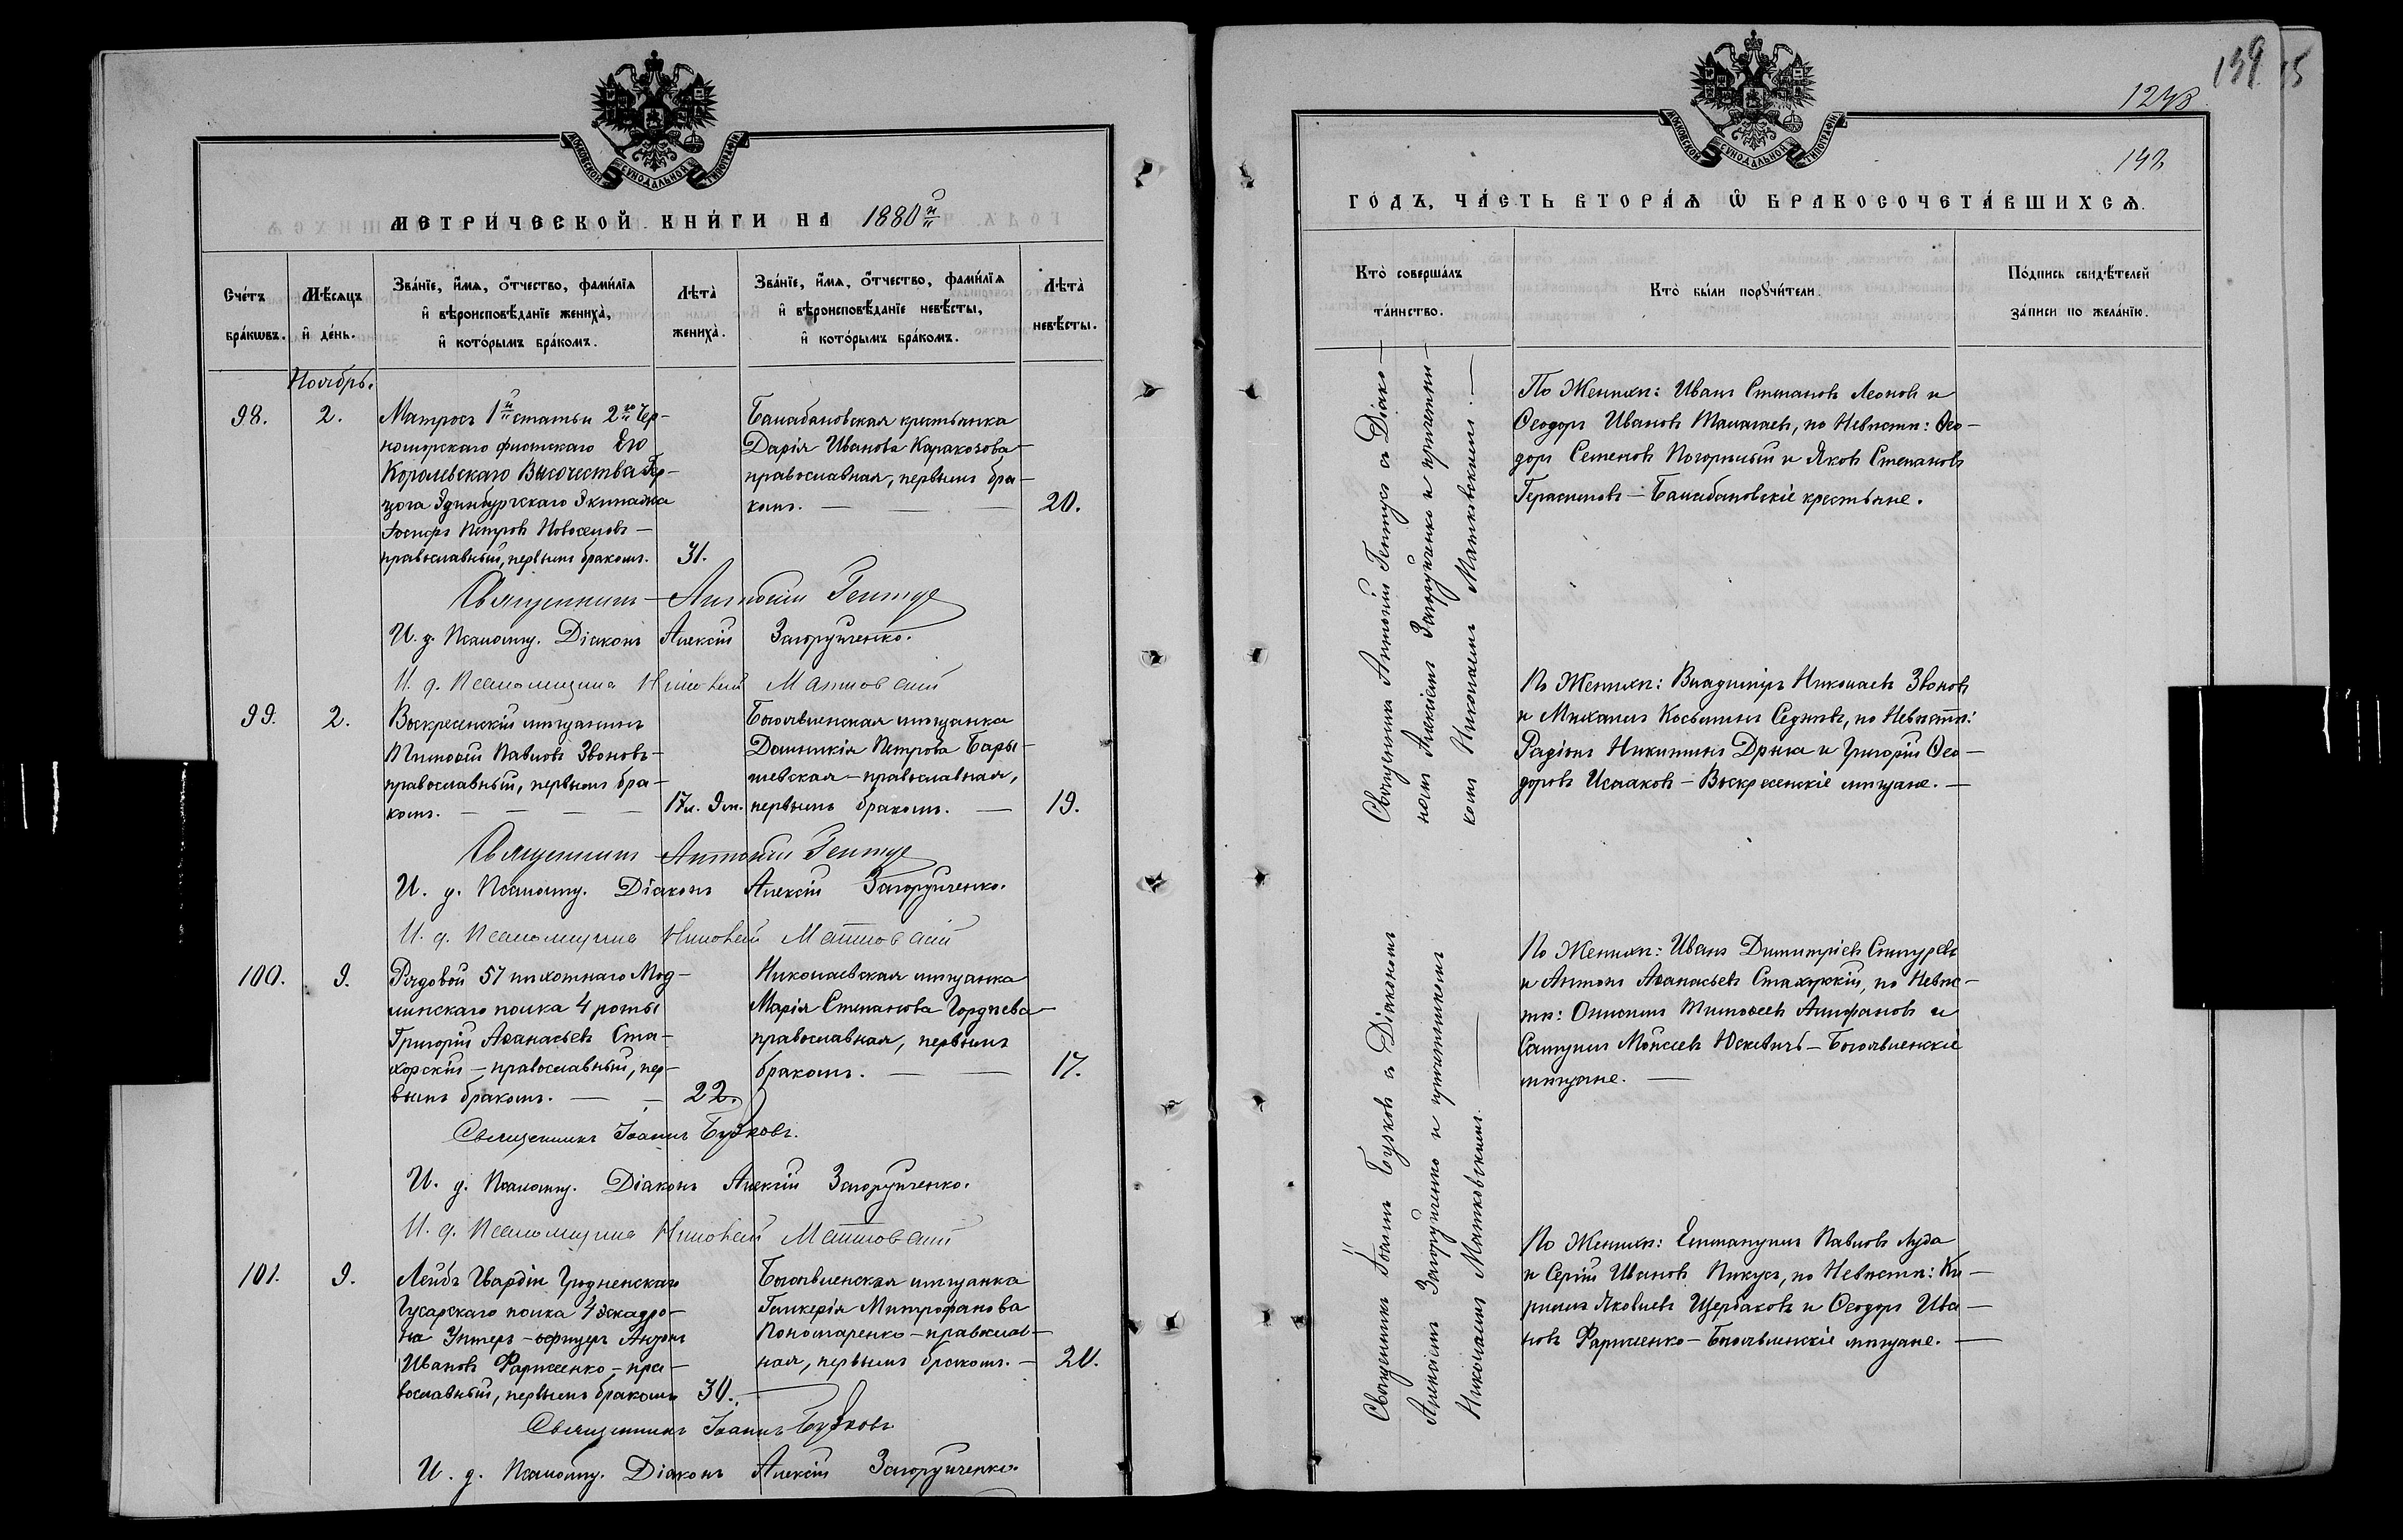 МОСКОВСКОЙ СУНОДАЛЬНОЙ ТИПОГРАФІИ
МЕТРИ́ЧЕСКОЙ КНИ́ГИ НА 1880й
Сче́тъ бра́кѡвъ.
Мѣ́сяцъ и҆ де́нь.
Зва́нїе, и҆́мѧ, ѻ҆́тчество, фами́лїѧ
и҆ вѣроисповѣ́данїе жениха̀,
и҆ кото́рымъ бра́комъ.
Лѣта̀ жениха̀.
Зва́нїе, и҆́мѧ, ѻ҆́тчество, фами́лїѧ
и҆ вѣроисповѣ́данїе невѣ́сты,
и҆ кото́рымъ бра́комъ.
Лѣта̀ невѣ́сты.
Ноябрь.
98.
2.
Матросъ 1й статьи 2го Чер-
номорскаго флотскаго Его
Королевскаго Высочества Гер-
цога Эдинбургскаго Экипажа
Іосифъ Петровъ Новоселовъ –
православный, первымъ бракомъ.
31.
Балабановская крестьянка
Дарія Иванова Каракозова
православная, первымъ бра-
комъ.
20.
Священникъ Антоній Гентуг
И. д. Псаломщ. Діаконъ Алексій Загоруйченко.
И. д. Псаломщика Николай Матковскій
99.
2.
Воскресенскій мѣщанинъ
Тимоѳей Павловъ Звоновъ –
православный, первымъ бра-
комъ.
17л. 9м.
Богоявленская мѣщанка
Домникія Петрова Бары-
шевская – православная,
первымъ бракомъ.
19.
Священникъ Антоній Гентуг
И. д. Псаломщ. Діаконъ Алексій Загоруйченко.
И. д. Псаломщика Николай Матковскій
100.
9.
Рядовой 57 пѣхотнаго Мод-
линскаго полка 4 роты
Григорій Аѳанасьевъ Ста-
хорскій – православный, пер-
вымъ бракомъ.
22.
Николаевская мѣщанка
Марія Степанова Гордѣева
православная, первымъ
бракомъ.
17.
Священникъ Іоаннъ Бузковъ.
И. д. Псаломщ. Діаконъ Алексій Загоруйченко.
И. д. Псаломщика Николай Матковскій
101.
9.
Лейбъ Гвардіи Гродненскаго
Гусарскаго полка 4 эскадро-
на Унтеръ-офицеръ Антонъ
Ивановъ Фартшенко – пра-
вославный, первымъ бракомъ
30.
Богоявленская мѣщанка
Гликерія Митрофанова
Пономаренко – православ-
ная, первымъ бракомъ.
20.
Священникъ Іоаннъ Бузковъ
И. д. Псаломщ. Діаконъ Алексій Загоруйченко.
139
15
1243
142
МОСКОВСКОЙ СУНОДАЛЬНОЙ ТИПОГРАФІИ
ГО́ДЪ, ЧА́СТЬ ВТОРА́Ѧ Ѽ БРАКОСОЧЕТА́ВШИХСѦ.
Кто̀ соверша́лъ
та́инство.
Кто̀ бы́ли порꙋчи́тели.
По́дпись свидѣ́телей
за́писи по жела́нїю.
Священникъ Антоній Гентугъ съ Діако-
номъ Алексіемъ Загоруйченко и причетни-
комъ Николаемъ Матковскимъ.
По Женихѣ: Иванъ Степановъ Леоновъ и
Ѳеодоръ Ивановъ Малагаевъ, по Невѣстѣ: Ѳео-
доръ Семеновъ Погорѣлый и Яковъ Степановъ
Герасимовъ – Балабановскіе крестьяне.
По Женихѣ: Владиміръ Николаевъ Звоновъ
и Михаилъ Косьминъ Седневъ, по Невѣстѣ:
Радіонъ Никитинъ Дрыга и Григорій Ѳео-
доровъ Исааковъ – Воскресенскіе мѣщане.
Священникъ Іоаннъ Бузковъ съ Діакономъ
Алексіемъ Загоруйченко и причетникомъ
Николаемъ Матковскимъ.
По Женихѣ: Иванъ Димитріевъ Снигуревъ
и Антонъ Аѳанасьевъ Стахорскій, по Невѣс-
тѣ: Онисимъ Тимоѳеевъ Агафановъ и
Самуилъ Моисеевъ Юскевичъ – Богоявленскіе
мѣщане.
По Женихѣ: Еммануилъ Павловъ Луда
и Сергій Ивановъ Пикусъ, по Невѣстѣ: Ки-
риллъ Яковлевъ Щербаковъ и Ѳеодоръ Ива-
новъ Фартшенко – Богоявленскіе мѣщане.